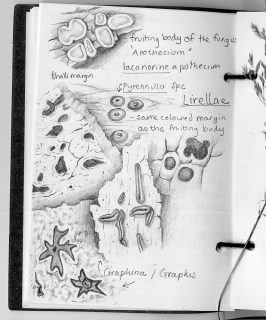 fruiting body of the fungus
"Apothecium"
lacanorine apothecium
thalli margin
Pyrennula spc
Lirellae
- same coloured margin
as the fruiting body
Graphina / Graphis